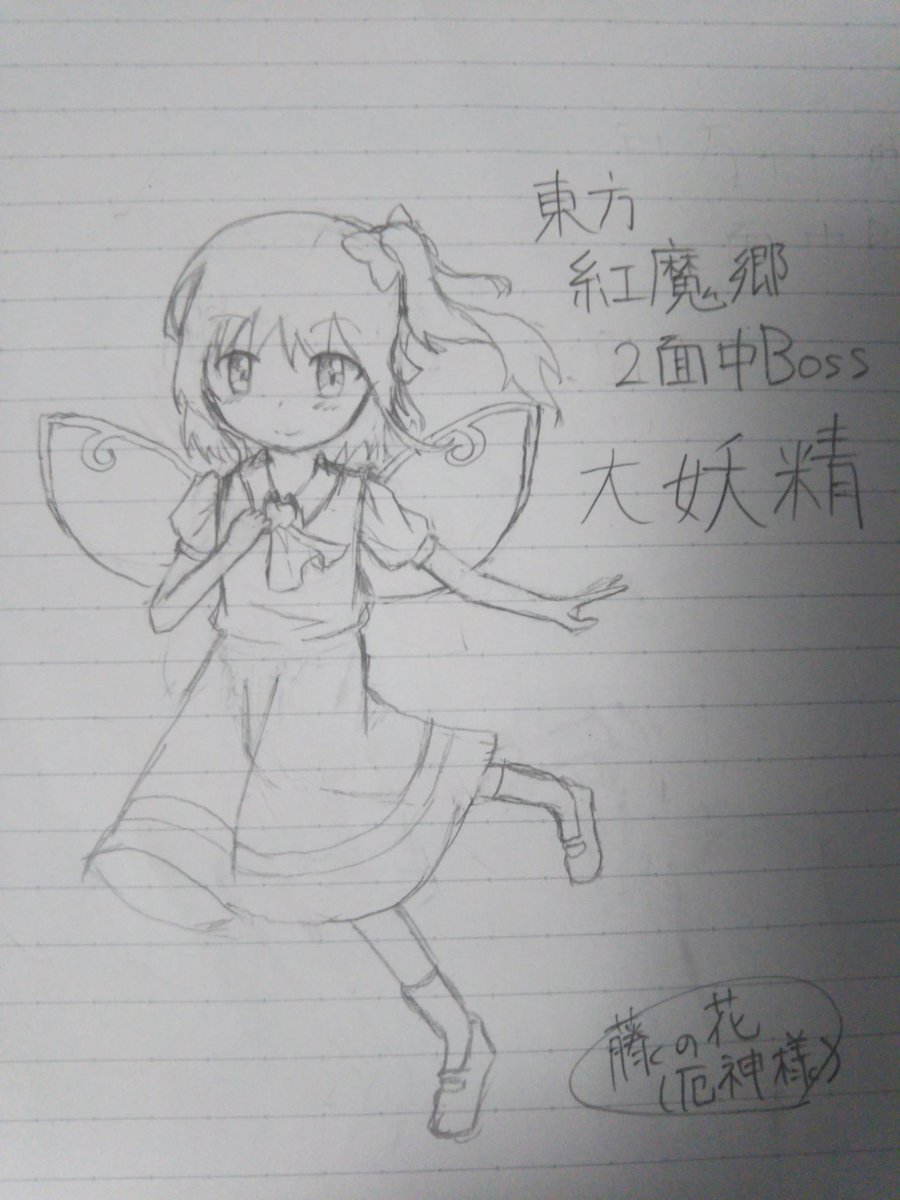 東方
紅魔郷
2面中Boss
大妖精
藤の花
(厄神様)